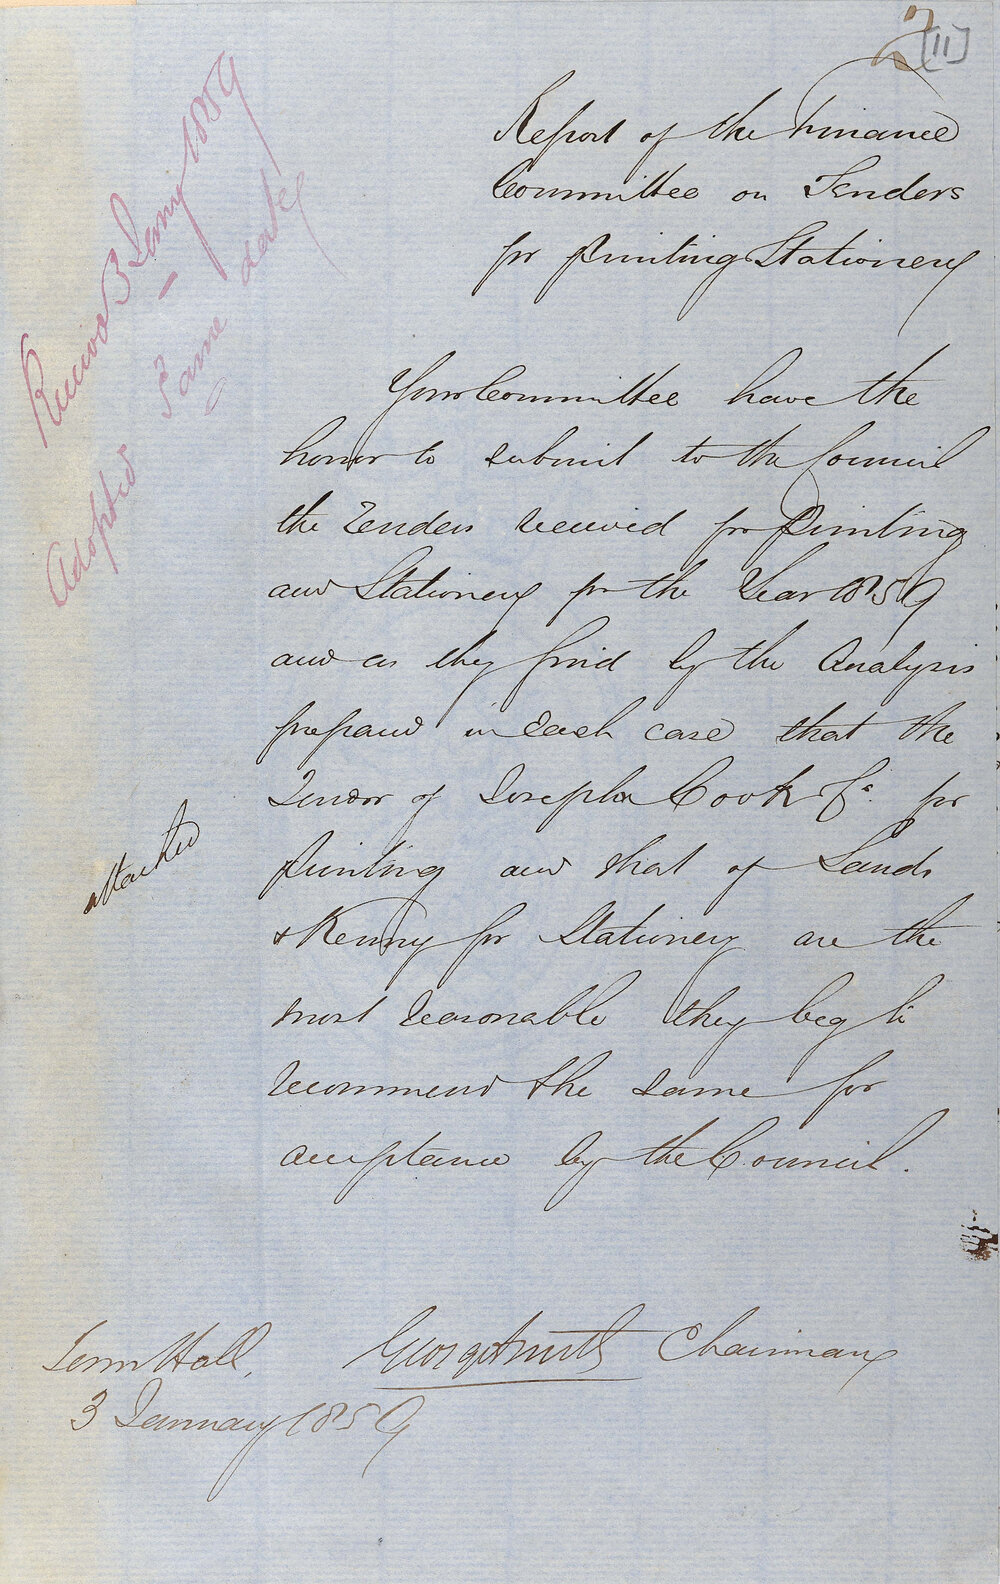 2 [11]
Report of the Finance
Committee on Tenders
for printing Stationery
Received 3 Jany 1859
Adopted same date
Your Committee have the
honor to submit to the Council
the Tenders received for Printing
and Stationery for the Year 1859
and as they find by the Analysis
prepared in each case that the
Tender of Joseph Cook & Co. for
Printing and that of Sands
& Kenny for Stationery are the
most reasonable they beg to
recommend the same for
acceptance by the Council.
attached
George Smith Chairman
Town Hall,
3 January 1859